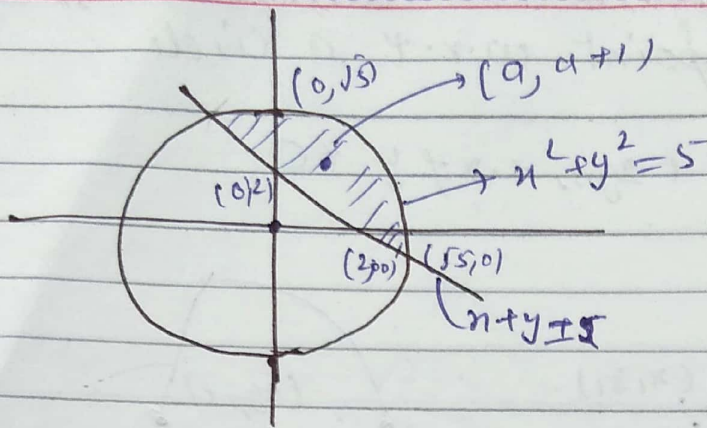 (0, √5)
(a, a+1)
x²+y² = 5
(0,2)
(2,0)
(√5,0)